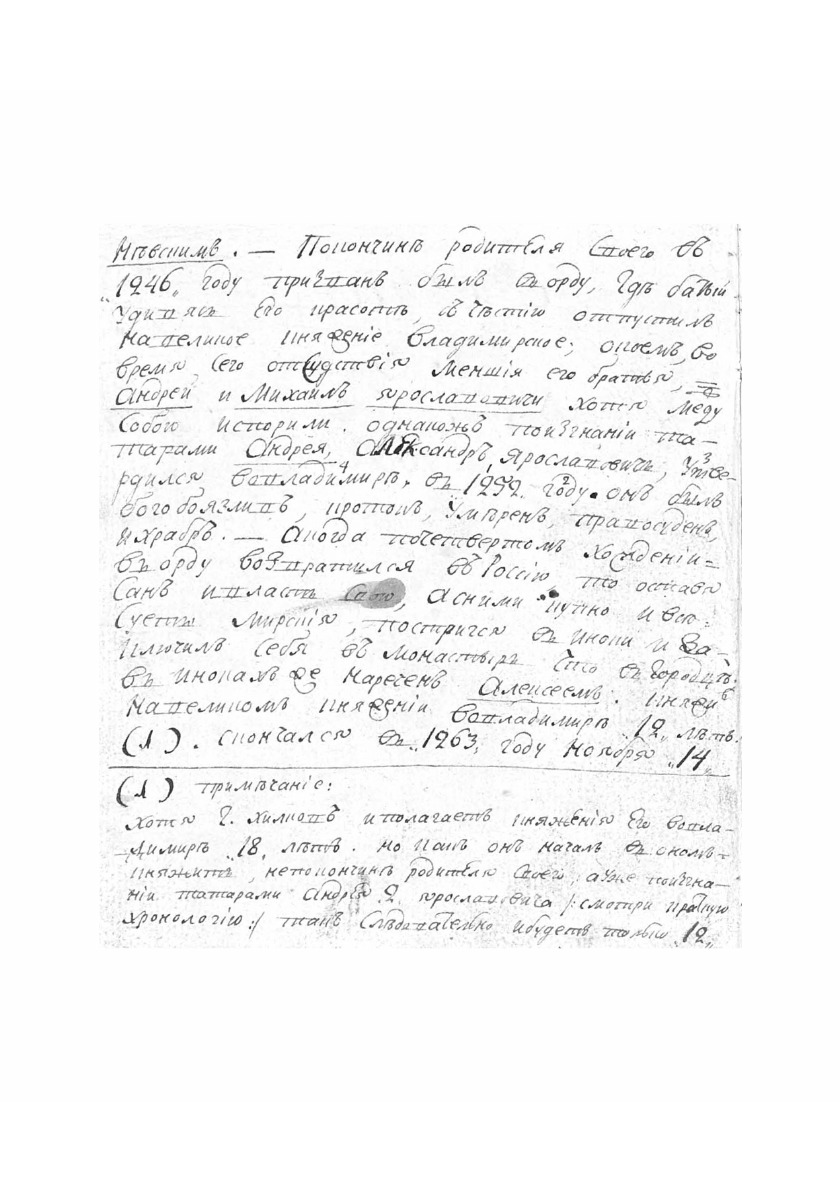 Невскимъ. — Поконч҃инѣ родителя Своего въ
1246„ году призванъ былъ въ орду, гдѣ батый
удивляясь Его красотѣ, съ честію отпустилъ
на великое княженіе владимирское; окоемъ, во
время Сего отсудствія меншія его братья,
Андрей и Михаилъ ярославовичи хотя межу
Собою и спорили. однакожъ поизгнаніи та-
тарами Андрея, Александръ, Ярославовичь, Утве-
рдился вовладимирѣ, въ 1252. году. онъ былъ
богобоязливъ, кротокъ, Умѣренъ, правосуденъ,
и храбръ. — Акогда почетвертомъ хожденіи=
въ орду возвратился въ Россію то оставя
Санъ и власть Свою, аснимикупно и всю
Суету мирскія, постригся въ иноки и За-
ключилъ Себя въ монастырѣ Что въ городцѣ.
въ инокахъ же нареченъ Алексеемъ. княжи
на великомъ княженіи вовладимирѣ „12„ лѣтъ.
(1). скончался въ „1263„ году ноября „14„
(1) примѣчаніе:
хотя г. хилковъ и полагаетъ княженія Его вовла-
димирѣ „18„ лѣтъ. но какъ онъ началъ въ ономъ=
княжить, непокончинѣ родителя Своего, аУже поизгна-
ніи татарами Андрея 2. ярославовича /: смотри краткую
хронологію :/ такъ Слѣдовательно ибудетъ только „12„